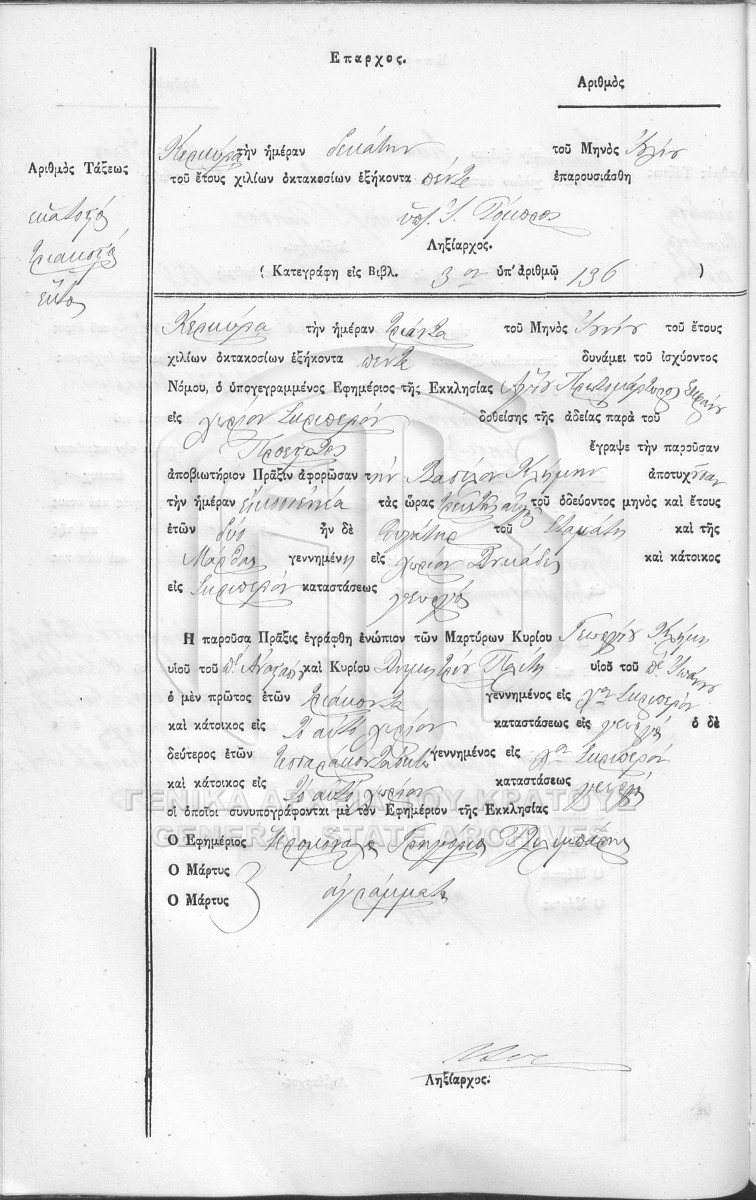 Επαρχος.
Αριθμὸς
Κερκύρα τὴν ἡμέραν δεκάτην τοῦ Μηνὸς
Αριθμὸς Τάξεως
τοῦ ἔτους χιλίων ὀκτακοσίων ἑξήκοντα πέντε ἐπαρουσιάσθη
Ληξίαρχος.
( Κατεγράφη εἰς Βιβλ. 3 ον ὑπ' ἀριθμῷ 136 )
Κερκύρα τὴν ἡμέραν τριάντα τοῦ Μηνὸς Ἰουνίου τοῦ ἔτους
χιλίων ὀκτακοσίων ἑξήκοντα πέντε δυνάμει τοῦ ἰσχύοντος
Νόμου, ὁ ὑπογεγραμμένος Ἐφημέριος τῆς Ἐκκλησίας Ἁγίου Πρωτομάρτυρος Στεφάνου
εἰς χωρίον Σκριπερόν δοθείσης τῆς ἀδείας παρὰ τοῦ
Προεστῶτος ἔγραψε τὴν παροῦσαν
ἀποβιωτήριον Πρᾶξιν ἀφορῶσαν τὴν Βασίλω Κλήμη ἀποτυχ
τὴν ἡμέραν εἰκοσιπέντε τὰς ὥρας τοῦ ὁδεύοντος μηνὸς καὶ ἔτους
ἐτῶν δύο ἦν δὲ θυγάτηρ τοῦ Σταμάτη καὶ τῆς
Μάρθας γεννημένη εἰς χωρίον καὶ κάτοικος
εἰς Σκριπερόν καταστάσεως γεωργός
Η παροῦσα Πρᾶξις ἐγράφθη ἐνώπιον τῶν Μαρτύρων Κυρίου Γεωργίου Κλήμη
υἱοῦ τοῦ καὶ Κυρίου Δημητρίου Πολίτη υἱοῦ τοῦ π. Ἰωάννου
ὁ μὲν πρῶτος ἐτῶν τριάκοντα γεννημένος εἰς χον Σκριπερόν
καὶ κάτοικος εἰς Τὸ αὐτὸ χωρίον καταστάσεως εἰς γεωργός ὁ δὲ
δεύτερος ἐτῶν γεννημένος εἰς χον Σκριπερόν
καὶ κάτοικος εἰς Τὸ αὐτὸ χωρίον καταστάσεως γεωργός
ΓΕΝΙΚΑ ΑΡΧΕΙΑ ΤΟΥ ΚΡΑΤΟΥΣ
οἱ ὁποῖοι συνυπογράφονται μὲ τὸν Ἐφημέριον τῆς Ἐκκλησίας
GENERAL STATE ARCHIVES
Ο Ἐφημέριος Ἱερομόναχος Γρηγόριος
Ο Μάρτυς
Ο Μάρτυς ἀγράμματοι
Ληξίαρχος.